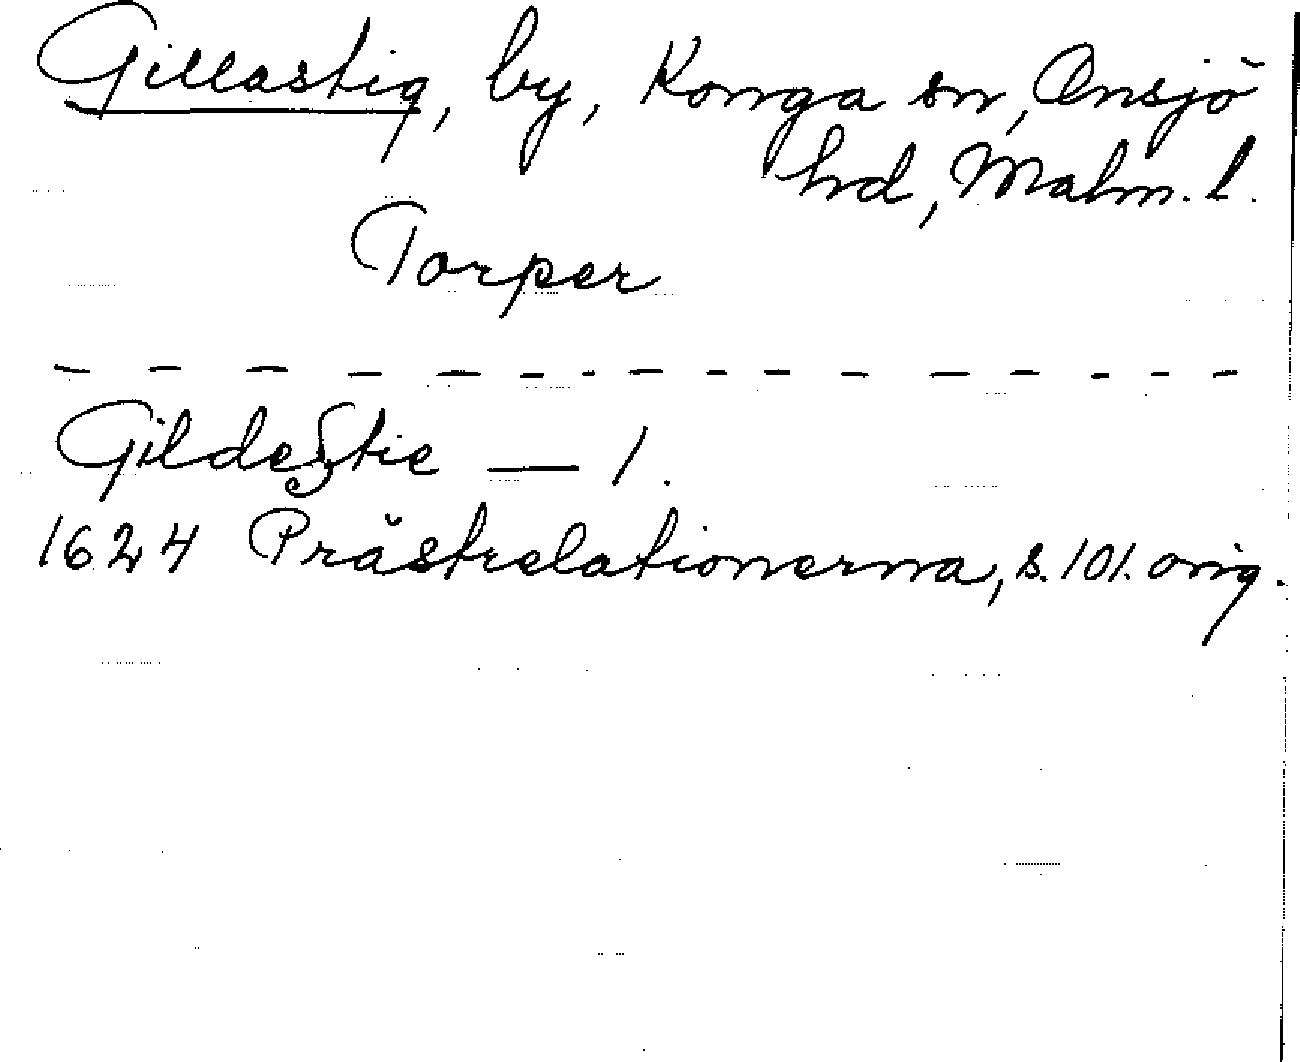 Gillastig, by, Konga sn, Onsjö
hd, Malm. l.
Torper
Gildestie — 1.
1624 Prästrelationerna, s. 101. orig.